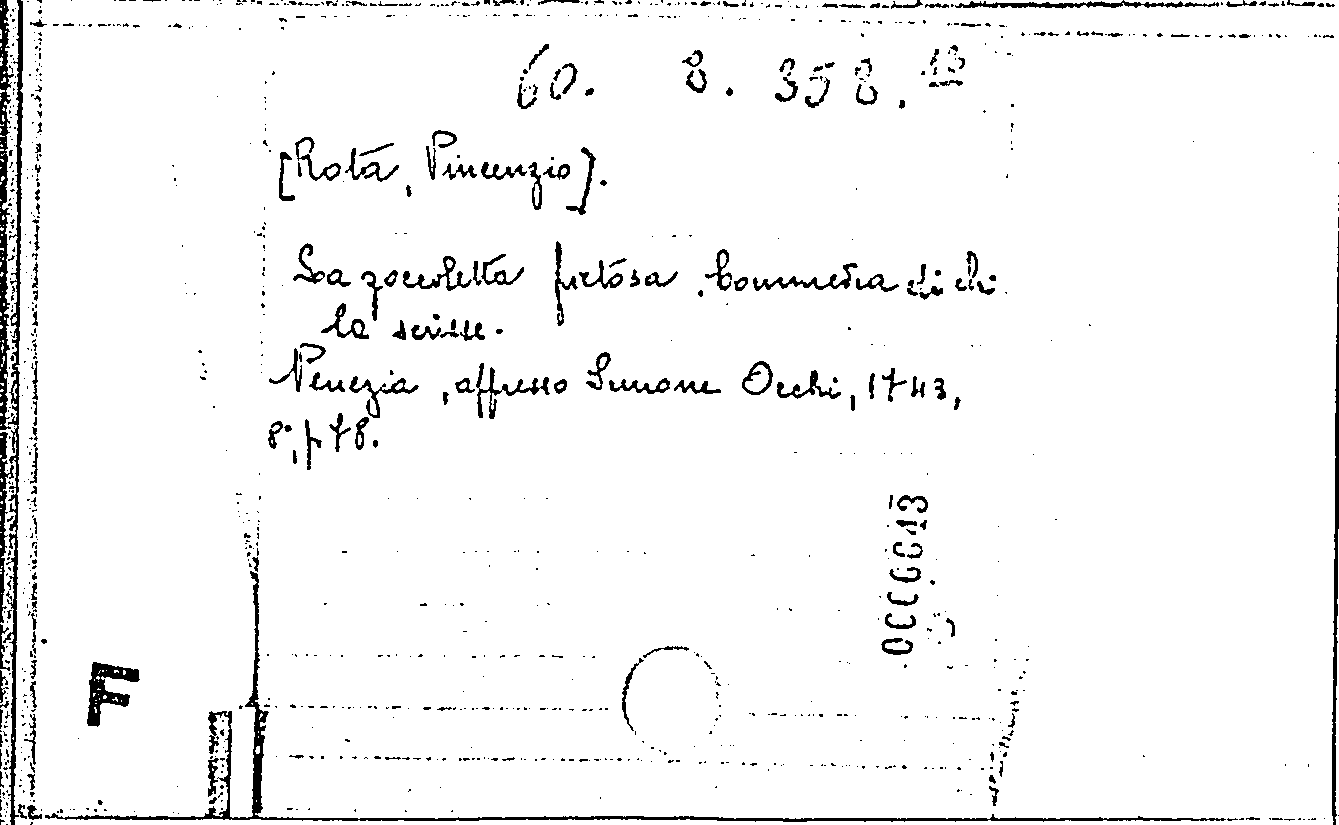 60. 8. 358. 13
[Rota, Vincenzio].
La zoccoletta pietosa. Commedia di chi
la scrisse.
Venezia, appresso Simone Occhi, 1743,
8°, p 78.
F